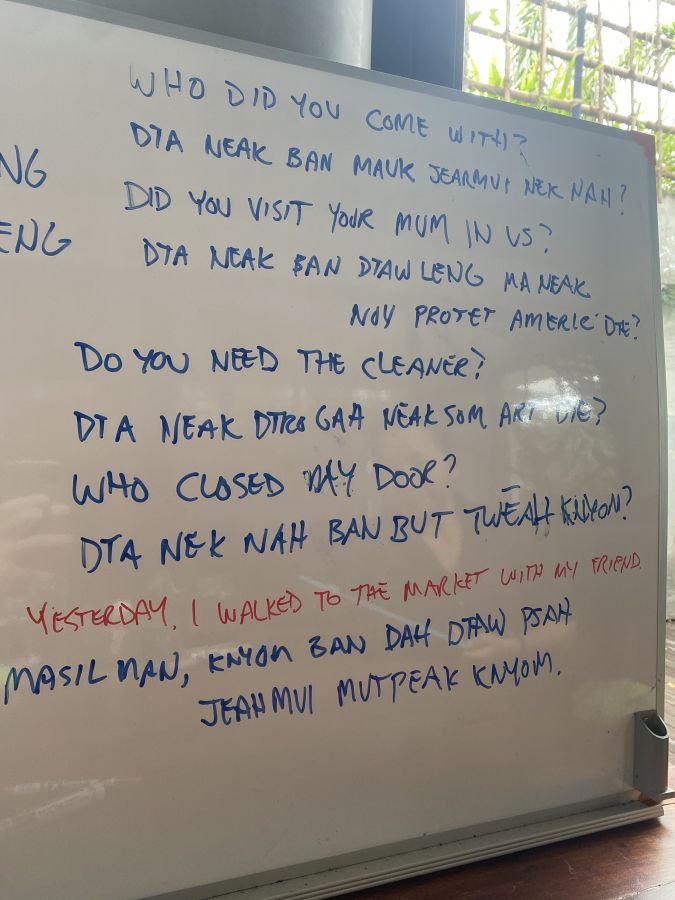 WHO DID YOU COME WITH?
DTA NEAK BAN MAUK JEARMUI NEK NAH?
NG
DID YOU VISIT YOUR MUM IN US?
ENG
DTA NEAK BAN DTAW LENG MA NEAK
NOY PROTET AMERIC DTE?
DO YOU NEED THE CLEANER?
DTA NEAK DTRO GAA NEAK SOM ART DTE?
WHO CLOSED MY DOOR?
DTA NEK NAH BAN BUT TWEAH KNYOM?
YESTERDAY, I WALKED TO THE MARKET WITH MY FRIEND.
MASIL MAN, KNYOM BAN DAH DTAW PSAH
JEAHMUI MUTPEAK KNYOM.